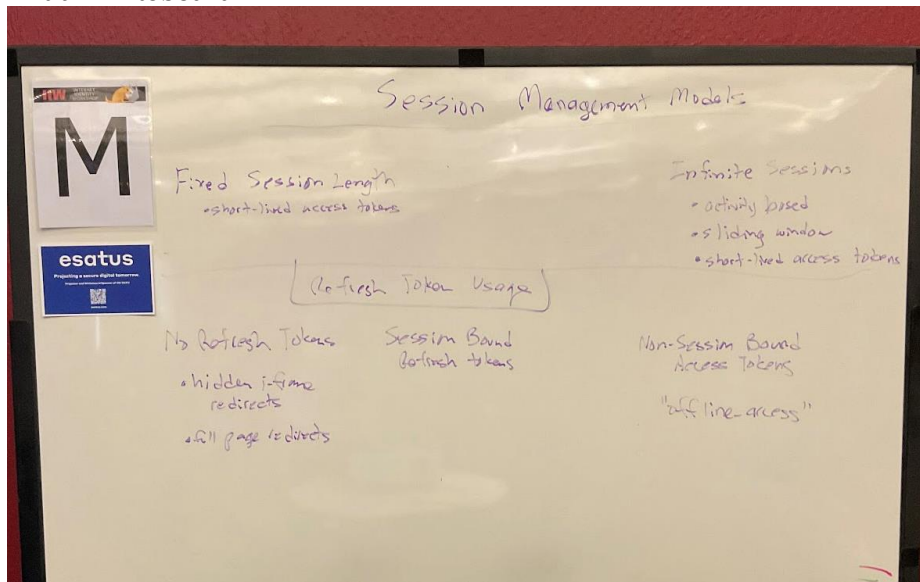 IIW INTERNET IDENTITY
M
esatus
Projecting a secure digital tomorrow.
Session Management Models
Fixed Session Length
•short-lived access tokens
Infinite Sessions
• activity based
• sliding window
• short-lived access tokens
Refresh Token Usage
No Refresh Tokens
• hidden i-frame
redirects
• full page redirects
Session Bound
Refresh tokens
Non-Session Bound
Access Tokens
"offline-access"